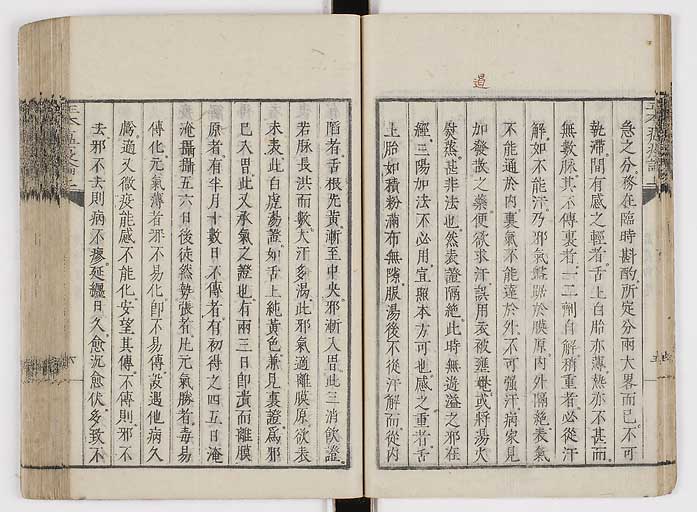 急之分務在臨時斟酌所定分兩大畧而已不可
執滯間有感之輕者舌上白胎亦薄熱亦不甚而
無數脉其不傳裏者一二劑自解稍重者必從汗
解如不能汗乃邪氣盤踞於膜原內外隔絶表氣
不能通於內裏氣不能達於外不可強汗病家見
加發散之藥便欲求汗誤用衣被壅遏或將湯火
熨蒸甚非法也然表證隔絶此時無過溢之邪在
經三陽加法不必用宜照本方可也感之重者舌
上胎如積粉滿布無隙服湯後不從汗解而從內
過
陷者舌根先黃漸至中央邪漸入胃此三消飲證
若脉長洪而數大汗多渴此邪氣適離膜原欲表
未表此白虎湯證如舌上純黃色兼見裏證爲邪
已入胃此又承氣之證也有兩三日即潰而離膜
原者有半月十數日不傳者有初得之四五日淹
淹攝攝五六日後徒然勢張者凡元氣勝者毒易
傳化元氣薄者邪不易化即不易傳設遇他病久
虧適又微疫能感不能化安望其傳不傳則邪不
去邪不去則病不瘳延纏日久愈沉愈伏多致不